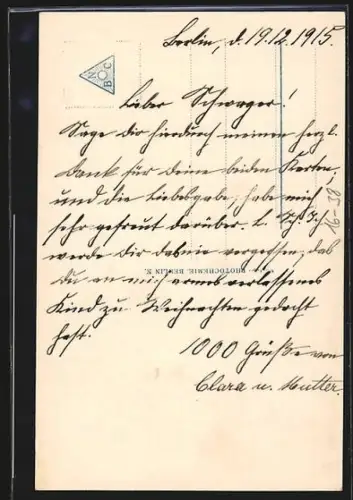 Berlin, d. 19.12.1915.
N
B C
Lieber Schwager!
Sage dir hierdurch meinen herzl.
Dank für deine beiden Karten,
und die Liebesgabe, habe mich
sehr gefreut darüber. L. Sch. Ich
werde dir das nie vergessen, das
PHOTOCHEMIE, BERLIN N.
du an mich armes verlassenes
Kind zu Weihnachten gedacht
hast.
1000 Grüße von
Clara u. Mutter.
16-38